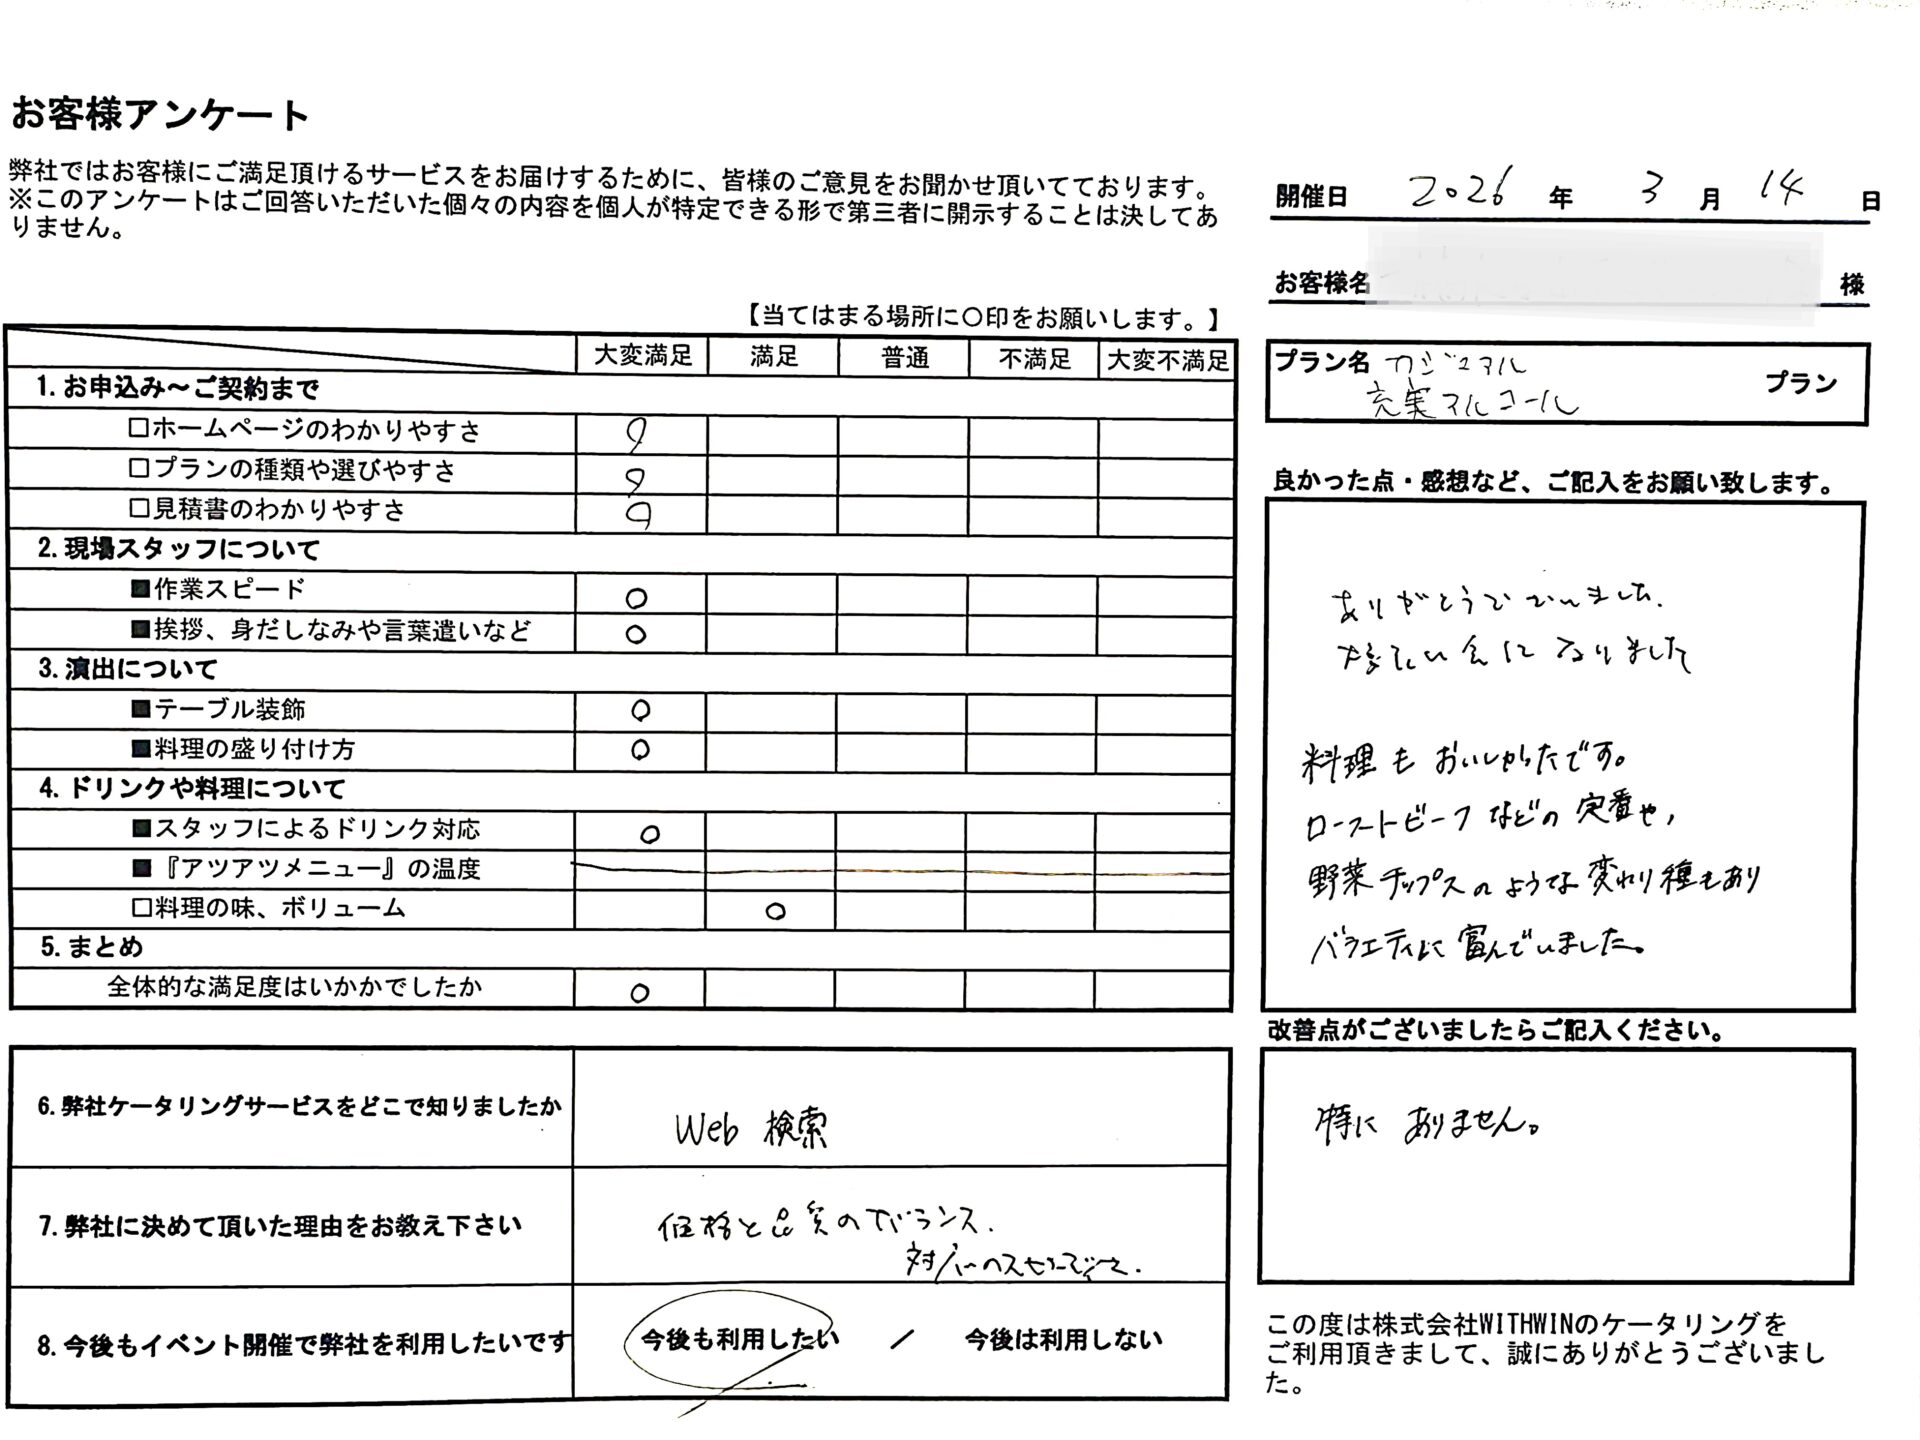 お客様アンケート
弊社ではお客様にご満足頂けるサービスをお届けするために、皆様のご意見をお聞かせ頂いてております。
※このアンケートはご回答いただいた個々の内容を個人が特定できる形で第三者に開示することは決してあ
りません。
開催日 2026 年 3 月 14 日
お客様名 様
【当てはまる場所に〇印をお願いします。】
プラン名 カジュアル
充実アルコール プラン
大変満足 満足 普通 不満足 大変不満足
1. お申込み～ご契約まで
□ホームページのわかりやすさ
□プランの種類や選びやすさ
□見積書のわかりやすさ
2. 現場スタッフについて
■作業スピード ○
■挨拶、身だしなみや言葉遣いなど ○
3. 演出について
■テーブル装飾 ○
■料理の盛り付け方 ○
4. ドリンクや料理について
■スタッフによるドリンク対応 ○
■『アツアツメニュー』の温度
□料理の味、ボリューム ○
5. まとめ
全体的な満足度はいかかでしたか ○
良かった点・感想など、ご記入をお願い致します。
ありがとうございました.
会になりました
料理も おいしかったです。
ローストビーフなどの定番や,
野菜チップスのような変わり種もあり
バラエティに富んでいました。
改善点がございましたらご記入ください。
特に ありません。
6. 弊社ケータリングサービスをどこで知りましたか
Web 検索
7. 弊社に決めて頂いた理由をお教え下さい
価格と品質のバランス.
8. 今後もイベント開催で弊社を利用したいです
今後も利用したい ／ 今後は利用しない
この度は株式会社WITHWINのケータリングを
ご利用頂きまして、誠にありがとうございまし
た。